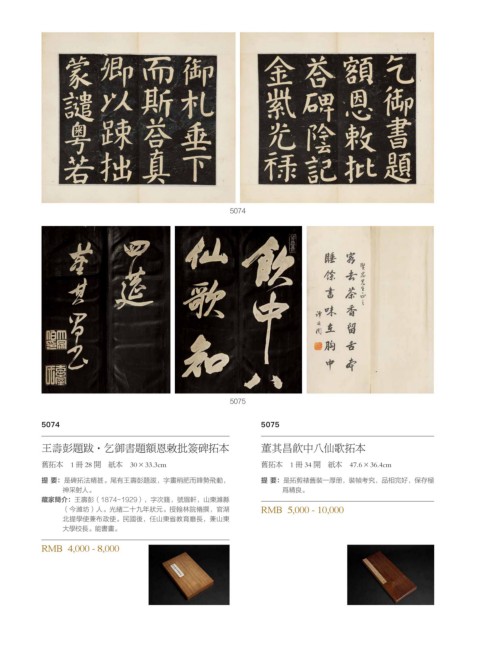 御札垂下
而斯荅真
卿以踈拙
蒙譴粵若
乞御書題
額恩敕批
荅碑陰記
金紫光祿
5074
四莚
董其昌書
飲中八
仙歌知
客去茶香留舌本
睡餘書味在胸中
5075
5074
王壽彭題跋·乞御書題額恩敕批答碑拓本
舊拓本 1冊28開 紙本 30×33.3cm
提 要：是碑拓法精甚。尾有王壽彭題跋，字畫稍肥而鋒勢飛動，
神采射人。
藏家簡介：王壽彭（1874-1929），字次籛，號眉軒，山東濰縣
（今濰坊）人。光緒二十九年狀元。授翰林院修撰，官湖
北提學使兼布政使。民國後，任山東省教育廳長，兼山東
大學校長。能書畫。
RMB 4,000 - 8,000
5075
董其昌飲中八仙歌拓本
舊拓本 1冊34開 紙本 47.6×36.4cm
提 要：是拓剪裱舊裝一厚冊，裝幀考究，品相完好，保存極
爲綿良。
RMB 5,000 - 10,000